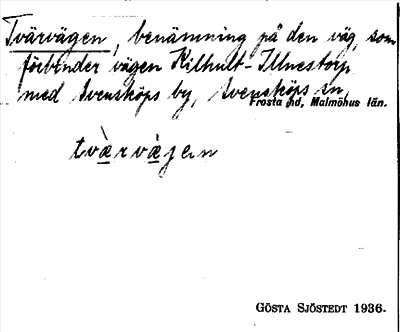 Tvärvägen, benämning på den väg, som
förbinder vägen Kilhult-Illnestorp
med Svensköps by, Svensköps sn,
Frosta hd, Malmöhus län.
tvæ̀rvæ̀jen
GÖSTA SJÖSTEDT 1936.